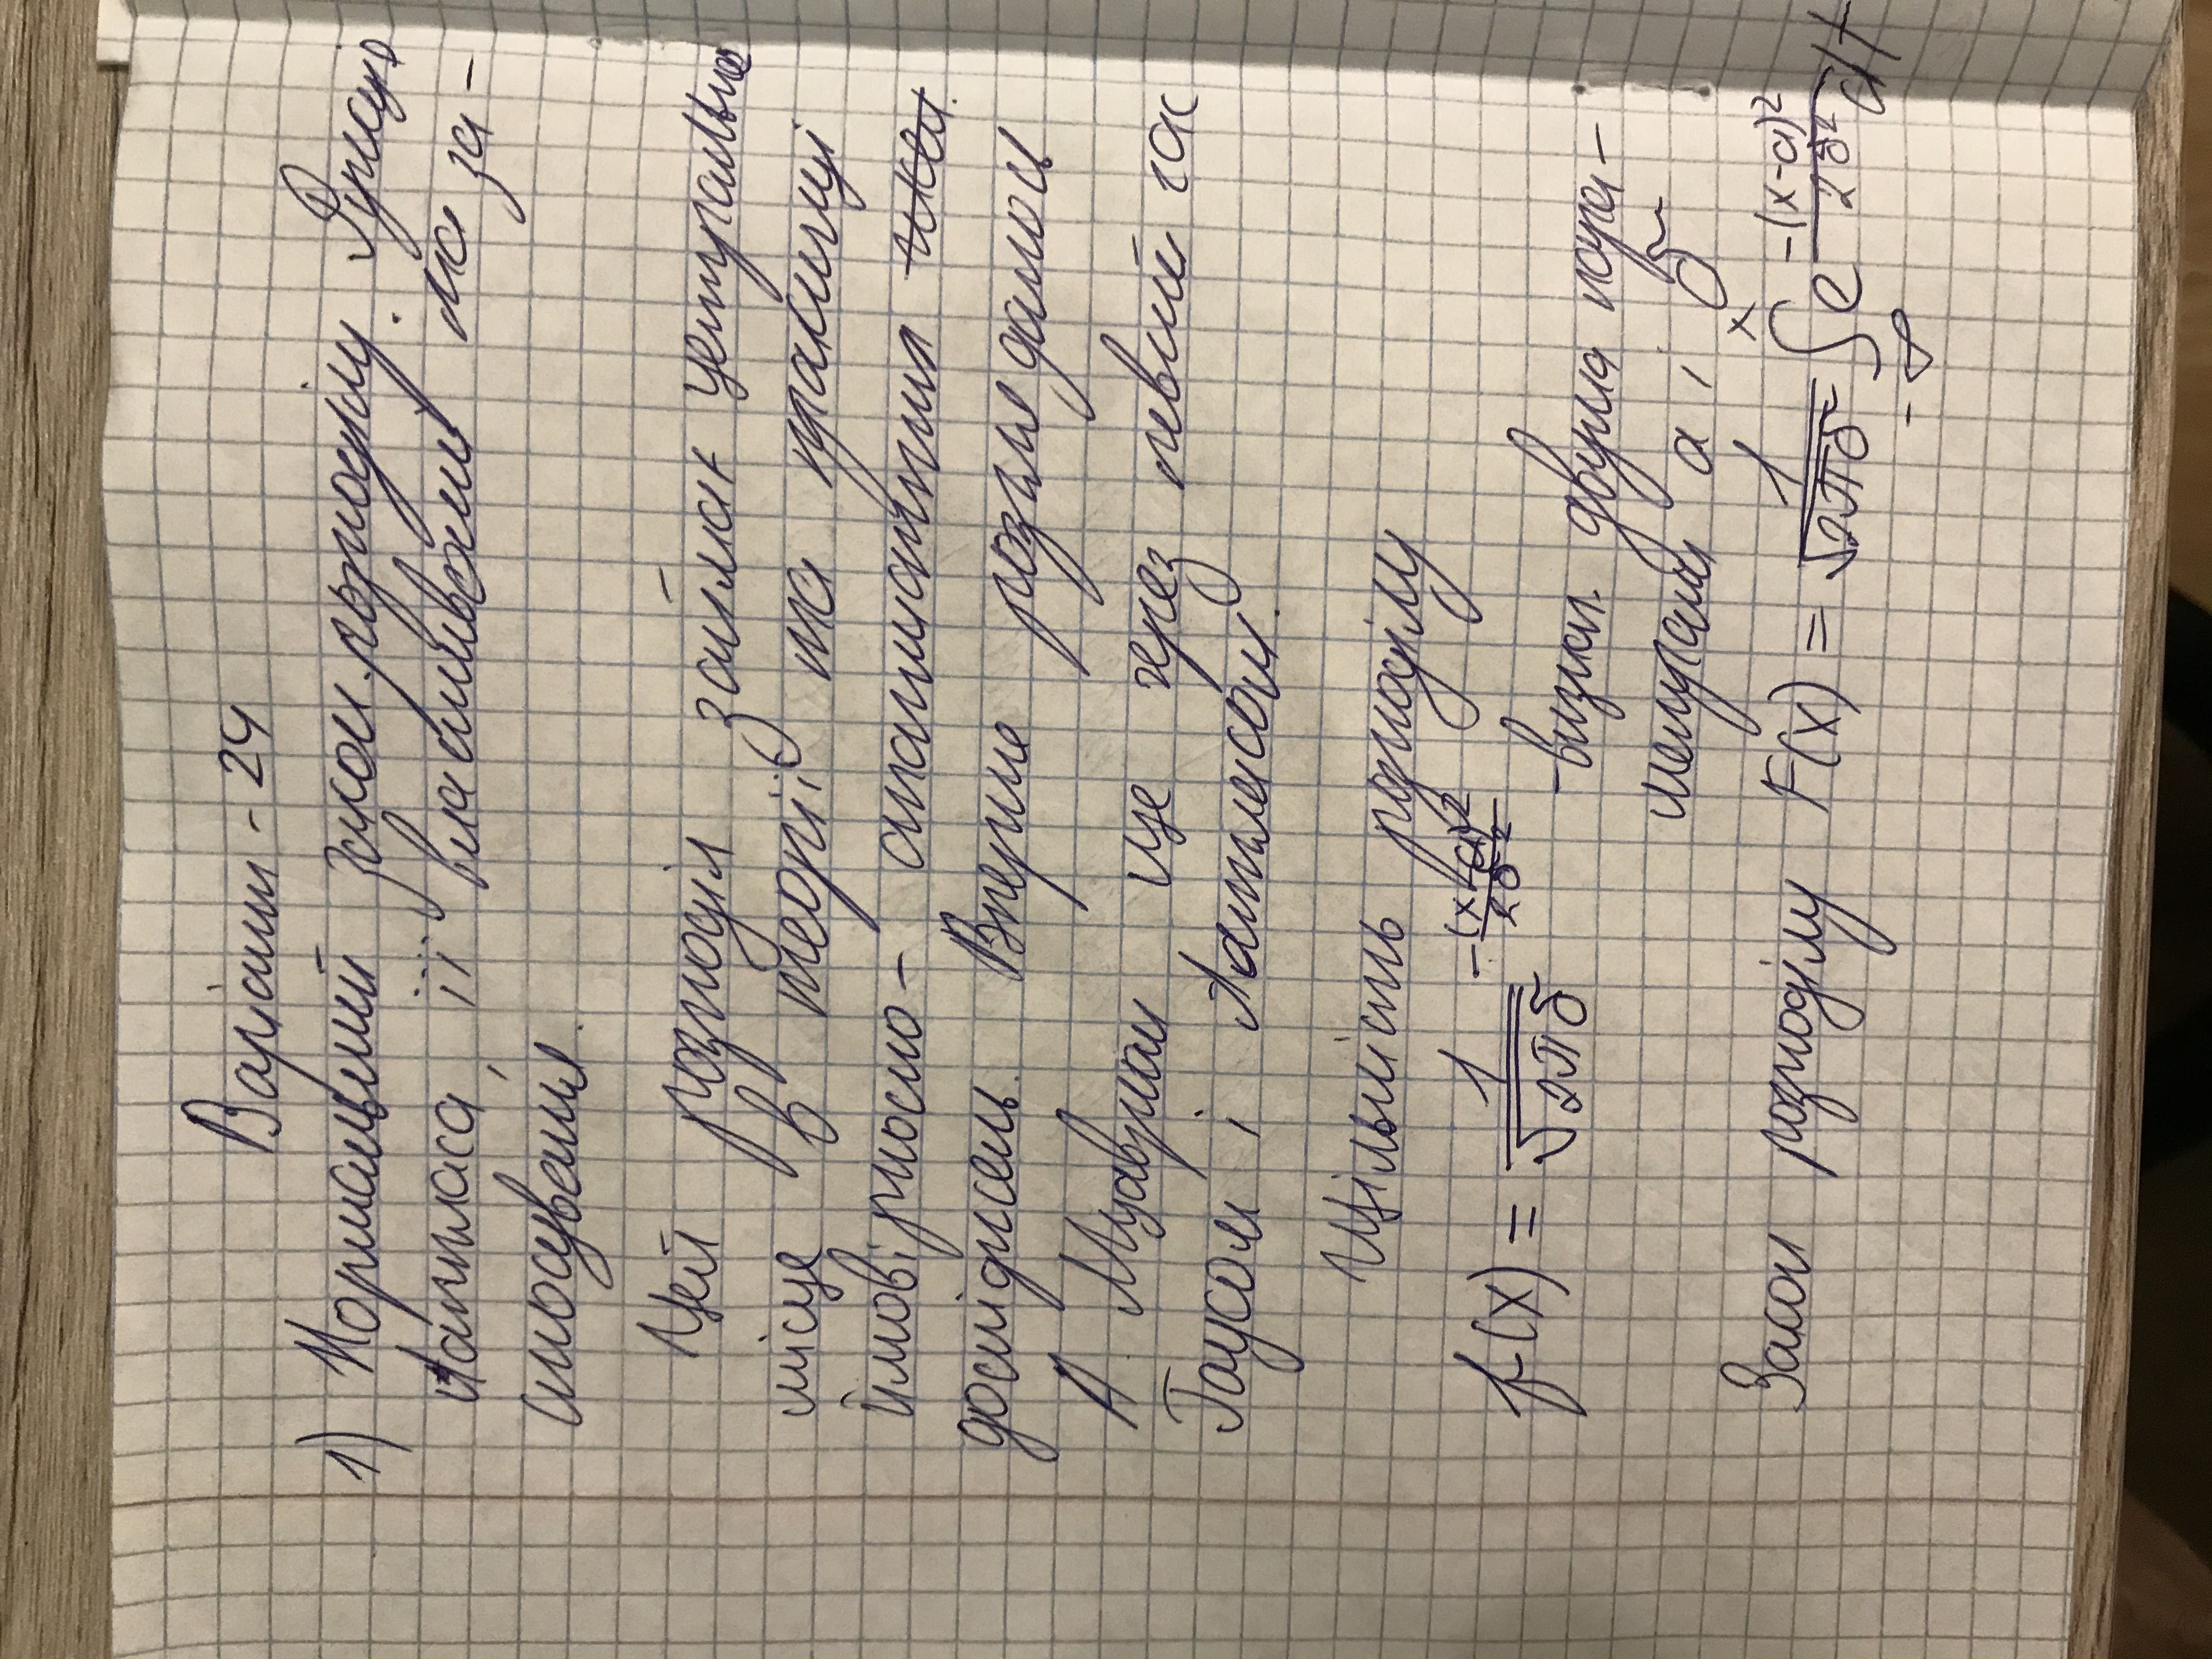 Варіант - 24
1) Нормальний закон розподілу. Функція
Лапласа, її властивості та за-
стосування.
Цей розподіл займає центральне
місце в теорії та практиці
ймовірносно - статистичних
досліджень. Вперше розглядалося
А. Муавром ще через певний час
Гаусом і Лапласом.
Щільність розподілу
f(x) = 1/√2πσ -(x-a)²/2σ²
- визнач. двума пара-
метрами a і σ
Закон розподілу F(x) = 1/√2πσ ∫ₓ₋∞ e -(x-a)²/2σ² dt